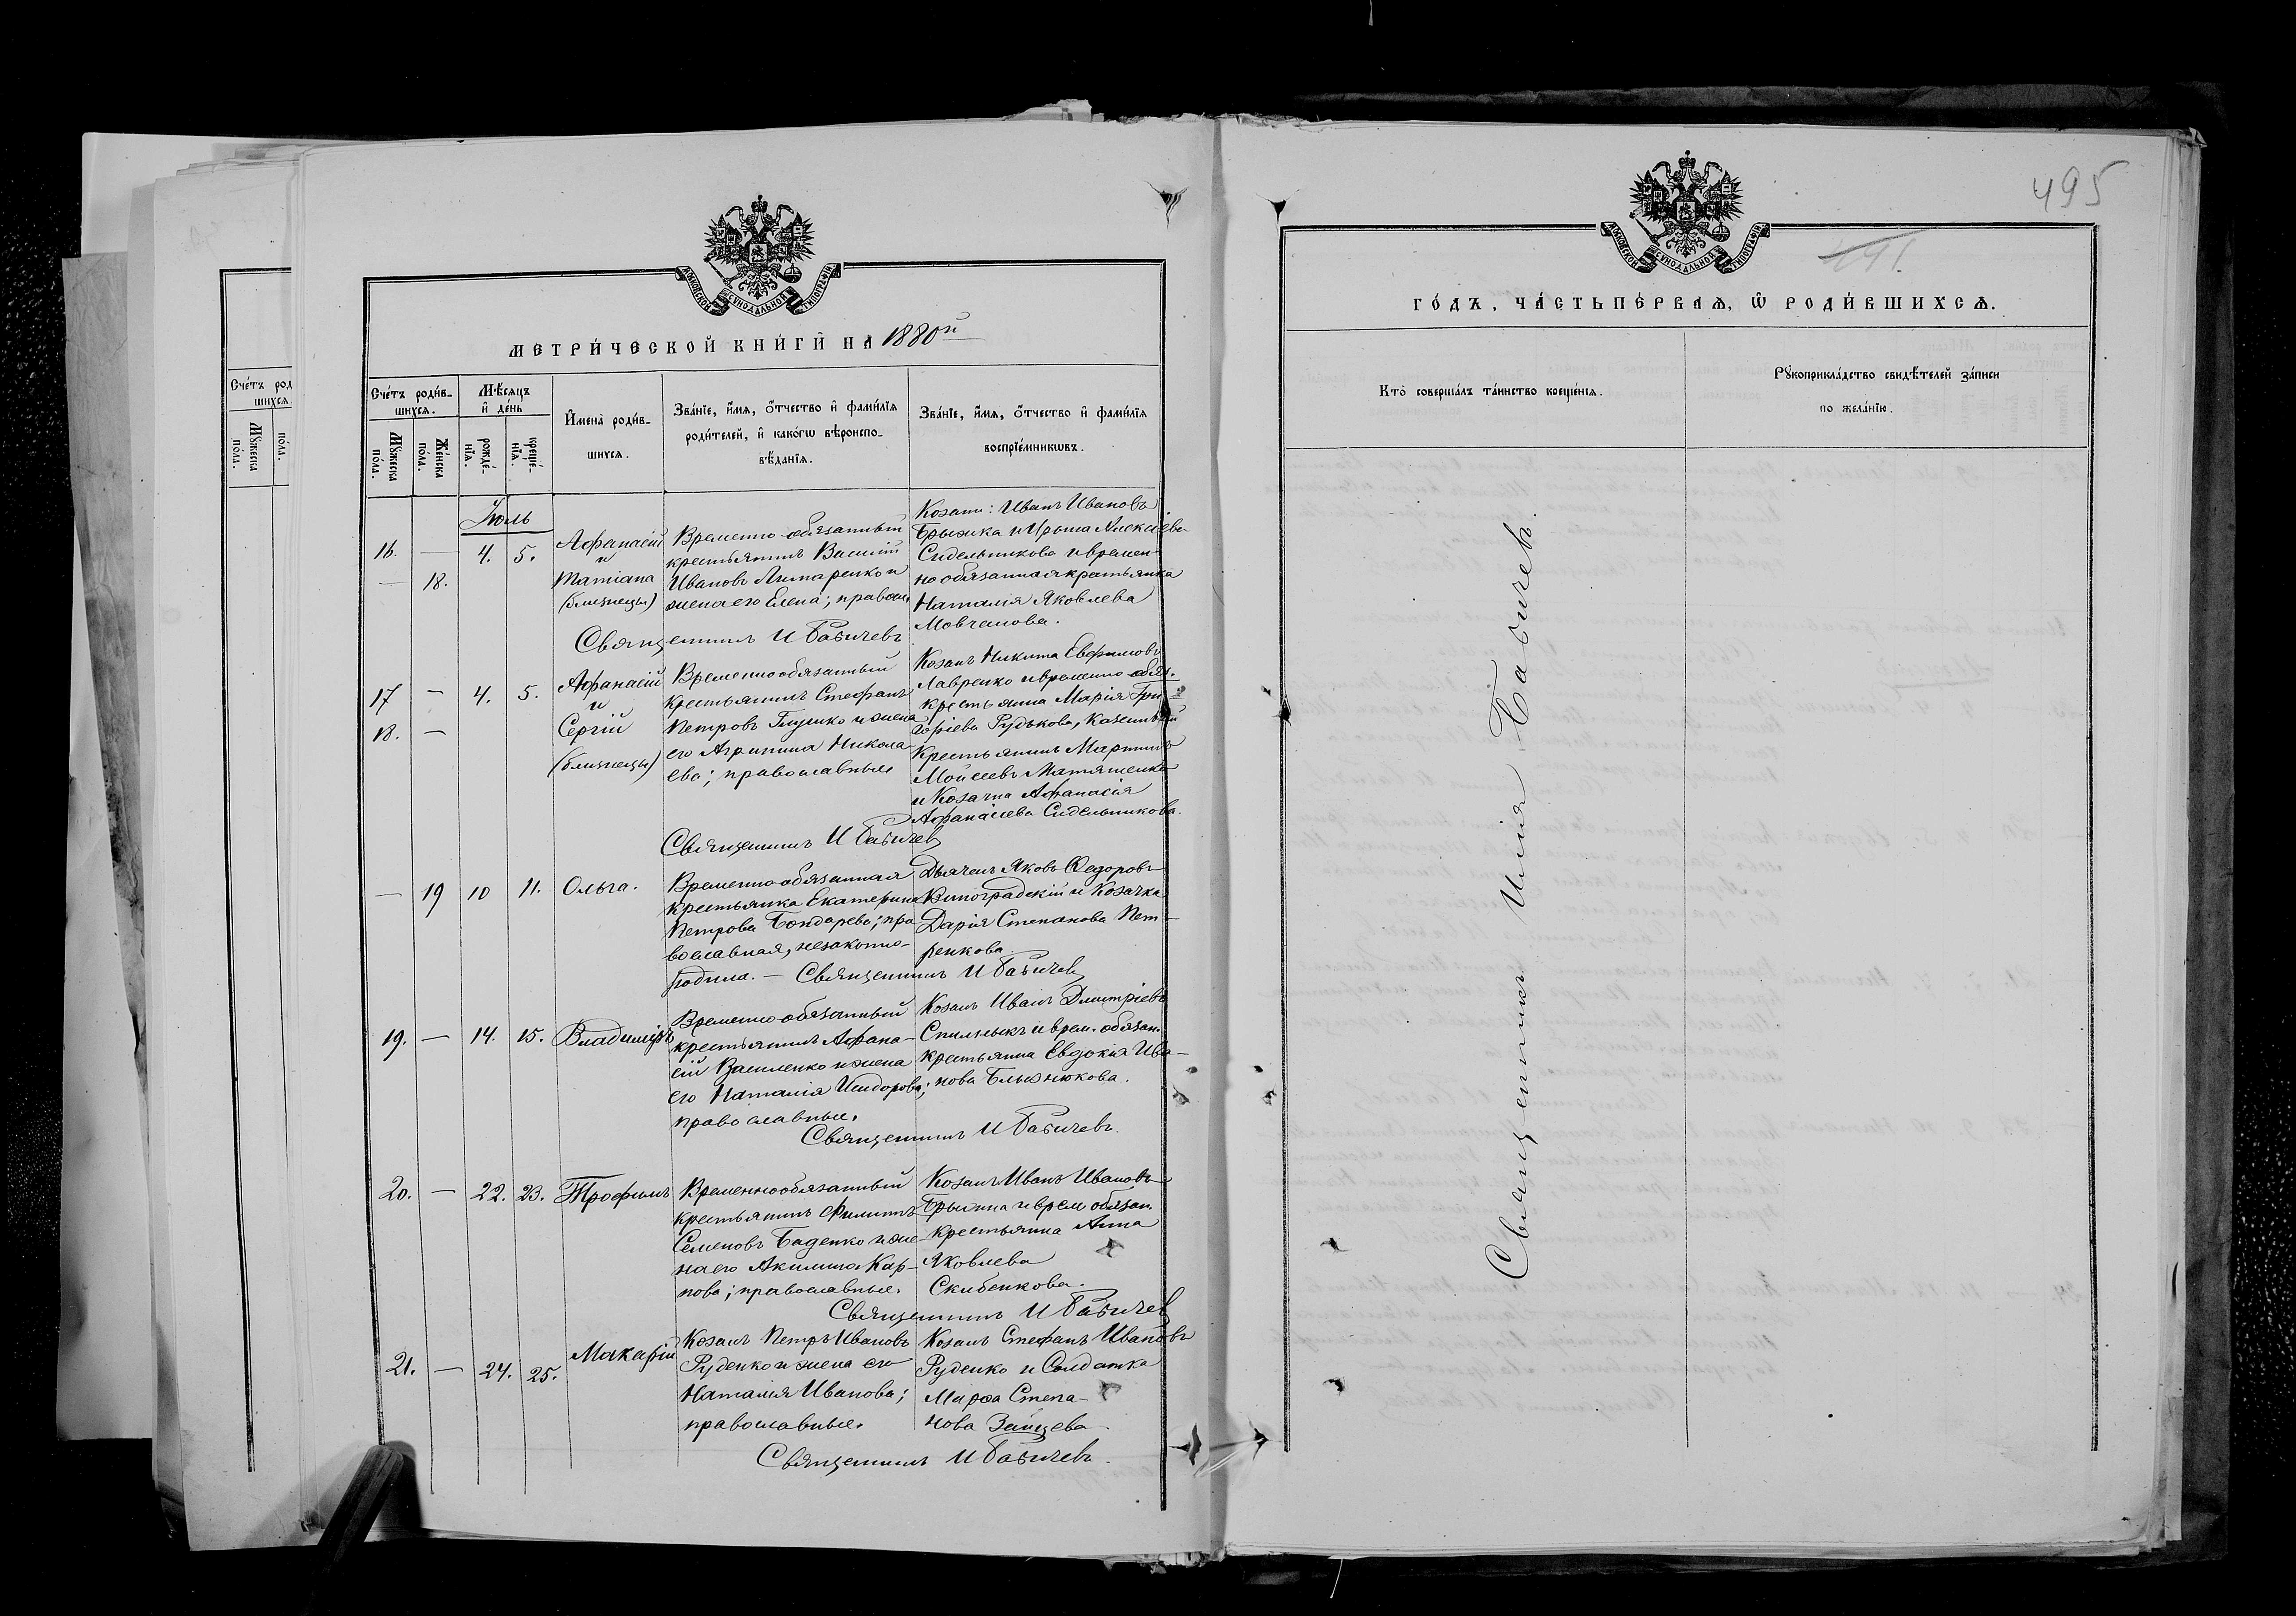 МОСКОВСКОЙ СѴНОДАЛЬНОЙ ТИПОГРАФІИ
МЕТРИ́ЧЕСКОЙ КНИ́ГИ НА 1880й
Сче́тъ роди́в-
шихся.
Мѣ́сяцъ
и҆ де́нь
И҆мена̀ роди́в-
шихся.
Зва́нїе, и҆́мя, ѻ҆́тчество и҆ фами́лїя
роди́телей, и҆ како́гѡ вѣроиспо-
вѣ́данїя.
Зва́нїе, и҆́мя, ѻ҆́тчество и҆ фами́лїя
воспрїе́мникѡвъ.
Мꙋ́жеска
по́ла.
Же́нска
по́ла.
рожде́-
нїя.
креще́-
нїя.
Іюль
16. — 4. 5. Афанасій
и
— 18. Татіана
(близнецы)
Временно-обязанный
крестьянинъ Василій
Ивановъ Литаренко и
жена его Елена; правосл.
Козаки: Иванъ Ивановъ
Брыжка и Ирина Алексіева
Сидельникова и времен-
но обязанная крестьянка
Наталія Яковлева
Мовчанова.
Священникъ И Бабичевъ
17 — 4. 5. Афанасій
и
18. — Сергій
(близнецы)
Временнообязанный
крестьянинъ Стефанъ
Петровъ Глушко и жена
его Агрипина Никола-
ева; православные
Козакъ Никита Евфимовъ
Лавренко и временно обяз.
крестьянка Марія Гри-
горіева Рудькова, Казенный
Крестьянинъ Мартинъ
Мойсеевъ Матяшенко
и Козачка Афанасія
Афанасіева Сидельникова.
Священникъ И Бабичевъ
— 19 10 11. Ольга.
Временно-обязанная
крестьянка Екатерина
Петрова Бондарева; пра-
вославная, незаконно-
родила. — Священникъ И Бабичевъ
Дьячекъ Яковъ Ѳедоровъ
Виноградскій и Козачка
Дарія Степанова Пет-
ренкова.
19. — 14. 15. Владиміръ
Временно-обязанный
крестьянинъ Афана-
сій Василенко и жена
его Наталія Исидорова;
православные.
Козакъ Иванъ Дмитріевъ
Спильныкъ и врем. обязан.
крестьянка Евдокія Ива-
нова Блызнюкова.
Священникъ И Бабичевъ.
20. — 22. 23. Трофимъ
Временнообязанный
крестьянинъ Филиппъ
Семеновъ Баденко и же-
на его Акилина Кар-
пова; православные.
Козакъ Иванъ Ивановъ
Брыжка и врем обязан.
крестьянка Анна
Яковлева
Скибенкова.
Священникъ И Бабичевъ
21. — 24. 25. Макарій
Козакъ Петръ Ивановъ
Руденко и жена его
Наталія Иванова;
православные.
Козакъ Стефанъ Ивановъ
Руденко и Солдатка
Марѳа Степа-
нова Зайцева.
Священникъ И Бабичевъ.
Сче́тъ род
шихся.
Мꙋ́жеска
по́ла.
по́ла.
495
491.
МОСКОВСКОЙ СѴНОДАЛЬНОЙ ТИПОГРАФІИ
ГО́ДЪ, ЧА́СТЬ ПЕ́РВАЯ, Ѡ҆ РОДИ́ВШИХСЯ.
Кто̀ соверша́лъ та́инство креще́нїя.
Рꙋкоприкла́дство свидѣ́телей за́писи
по жела́нїю.
Священникъ Илія Бабичевъ.